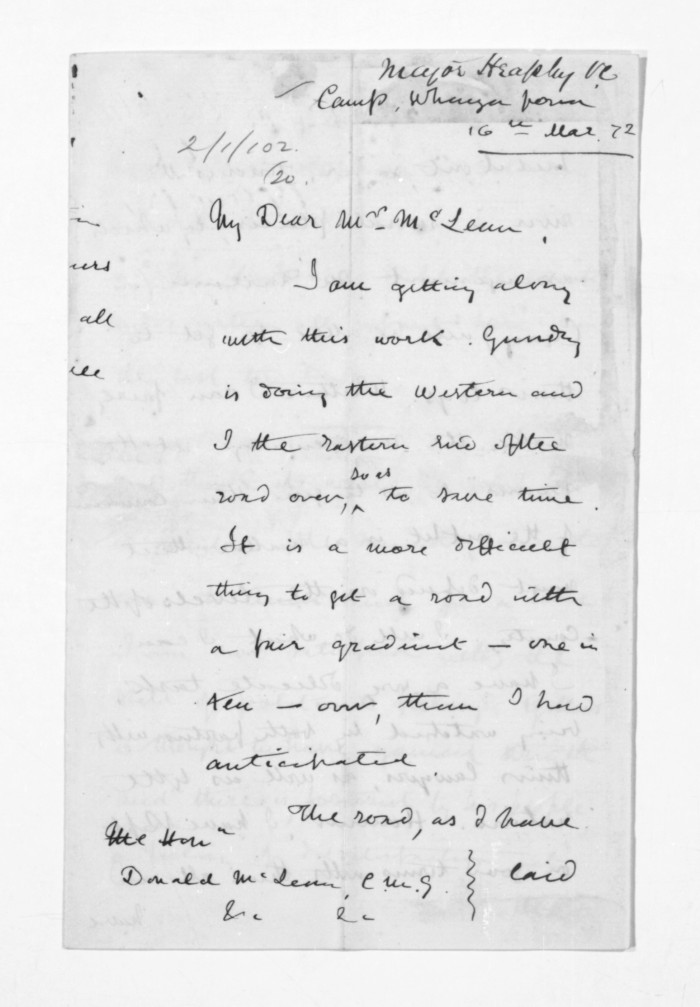 Major Heaphy VC
Camp, Whanga
16th Mar. 72
2/1/102.
/20.
My Dear Mr McLean,
I am getting along
with this work. Gundry
is doing the Western and
I the Eastern end of the
road over, so as to save time.
It is a more difficult
thing to get a road with
a fair gradient — one in
ten — over, than I had
anticipated
The road, as I have
laid
The Honble
Donald McLean, C.M.G.
&c &c
all